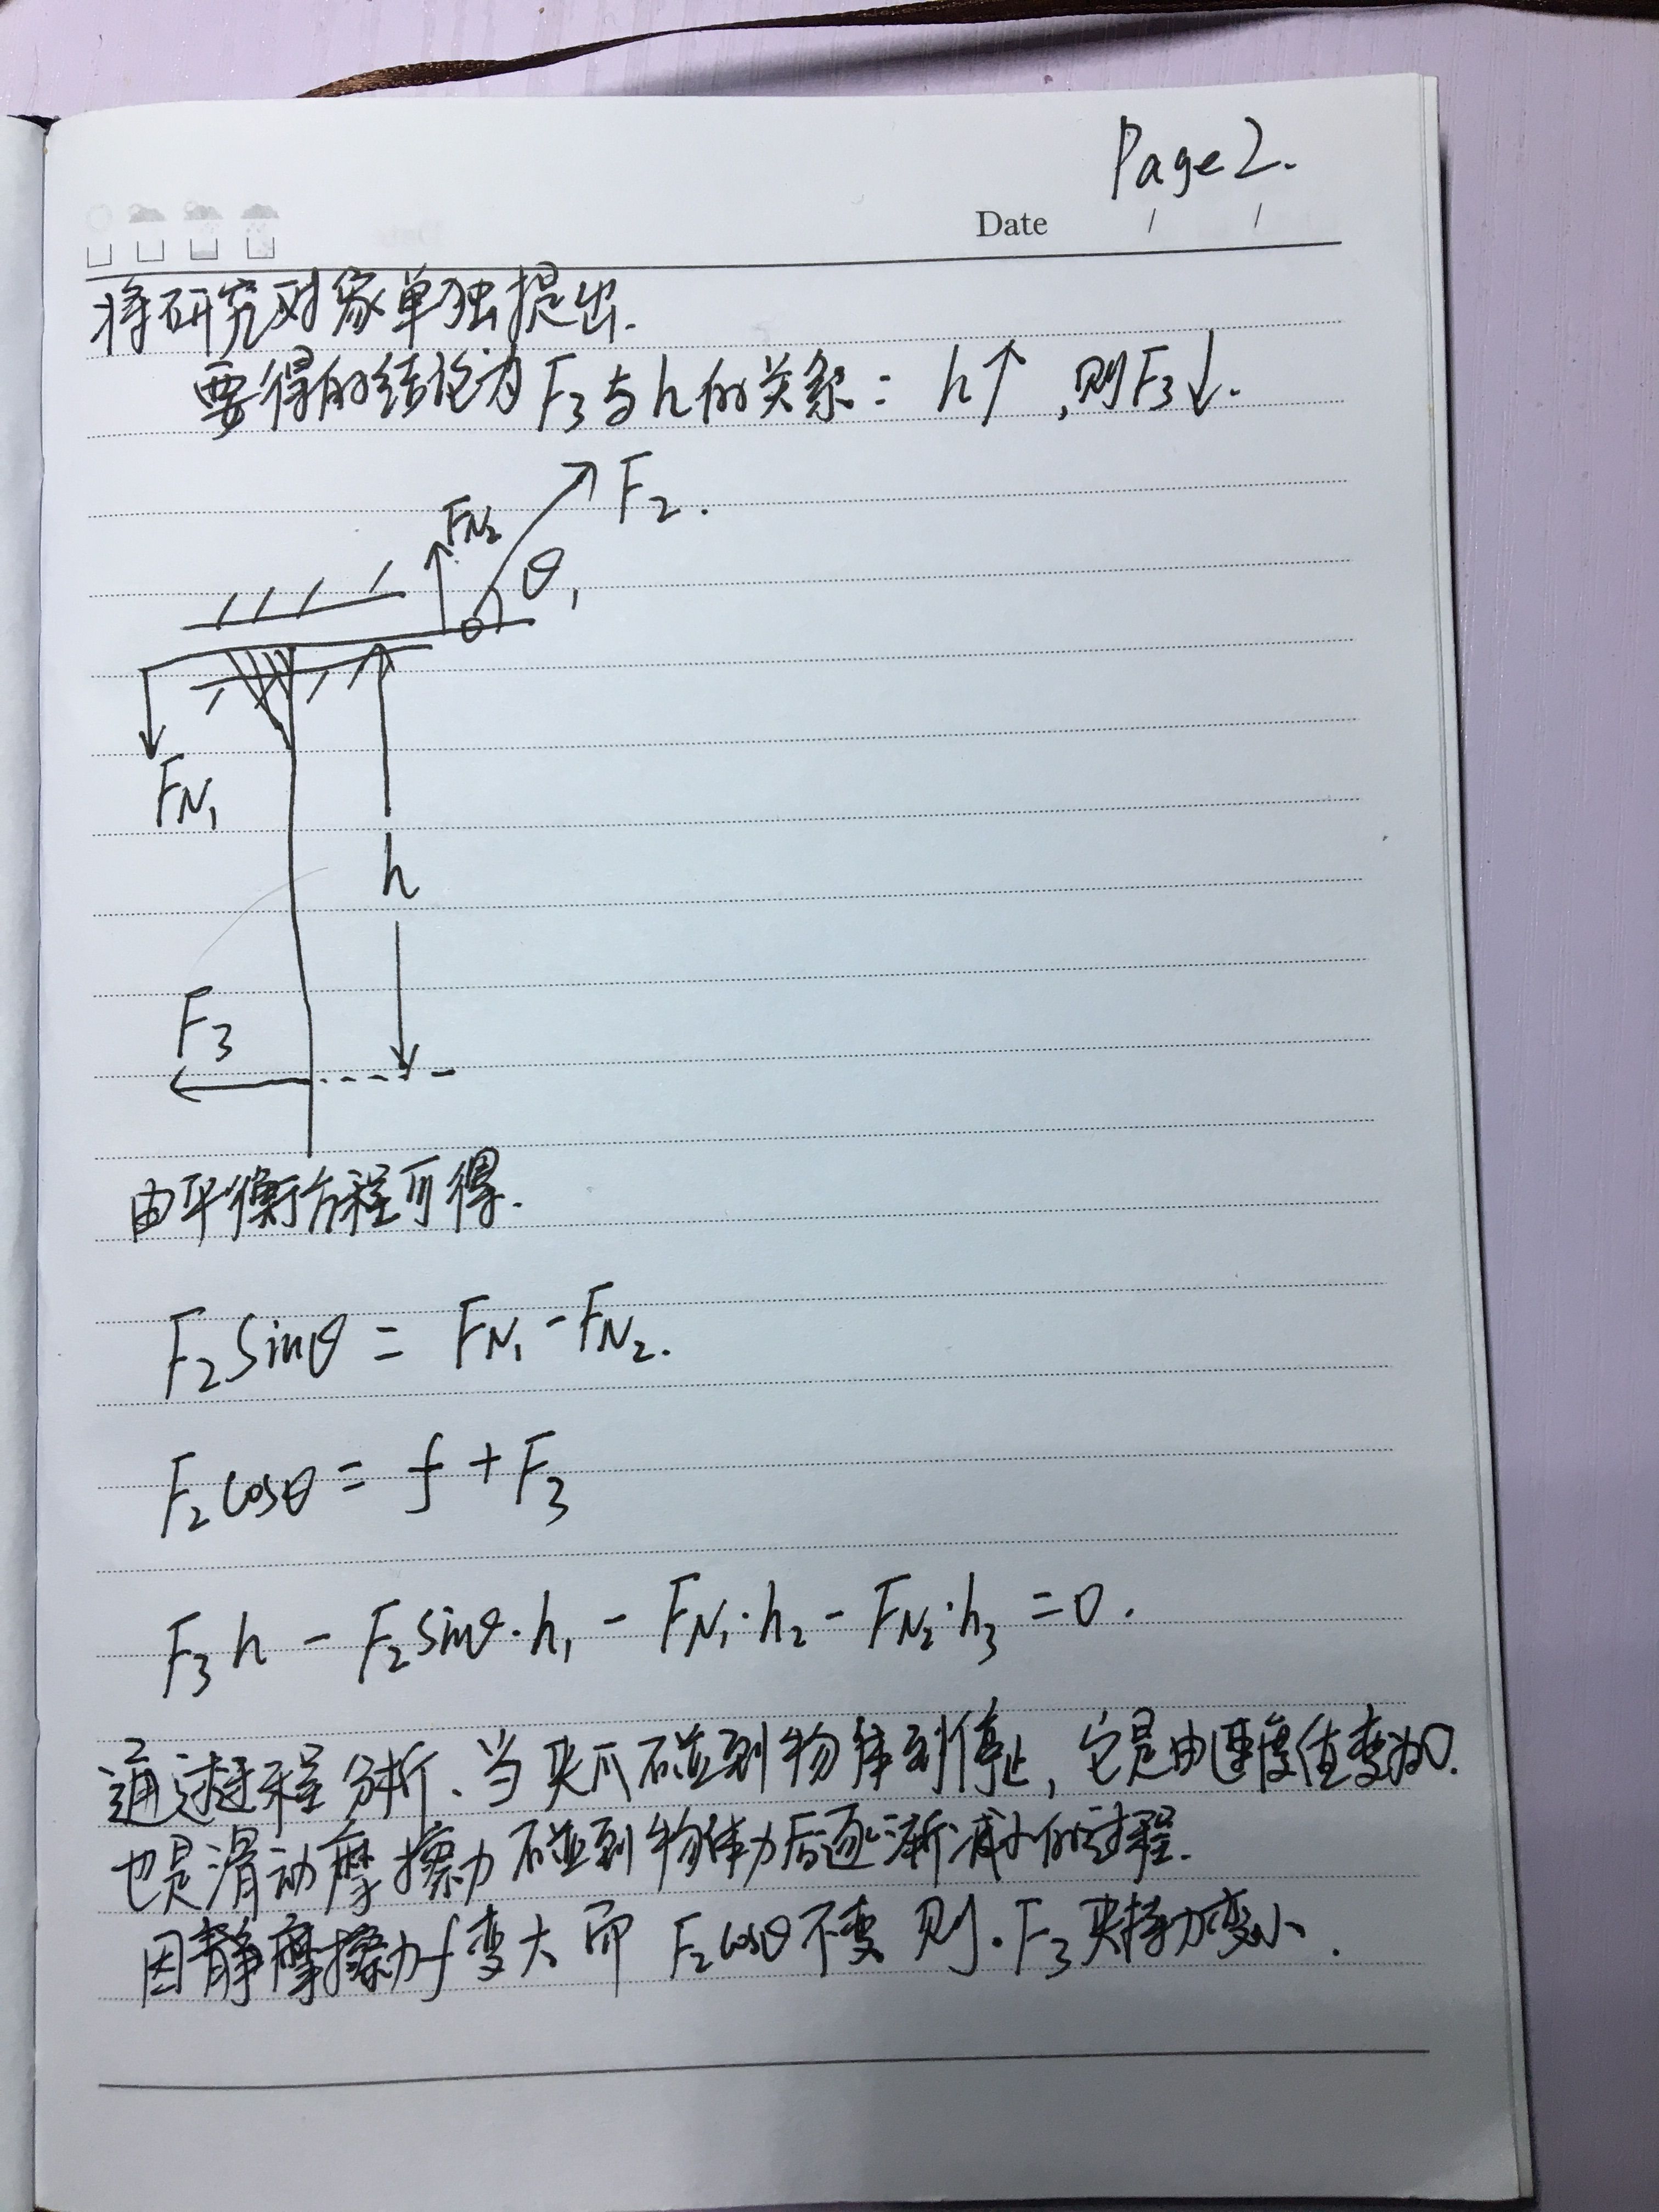 Page 2.
Date / /
将研究对象单独提出.
要得的结论为 F₃与h的关系: h↑,则F₃↓.
F₂.
FN₂
θ₁
FN₁
h
F₃
由平衡方程可得.
F₂sinθ = FN₁ - FN₂.
F₂cosθ = f + F₃
F₃h - F₂sinθ·h₁ - FN₁·h₂ - FN₂·h₃ = 0.
通过过程分析、当夹爪碰到物体到停止, 它是由速度值变为0.
也是滑动摩擦力碰到物体力后逐渐减小的过程.
因静摩擦力f变大而 F₂cosθ不变 则. F₃夹持力变小.